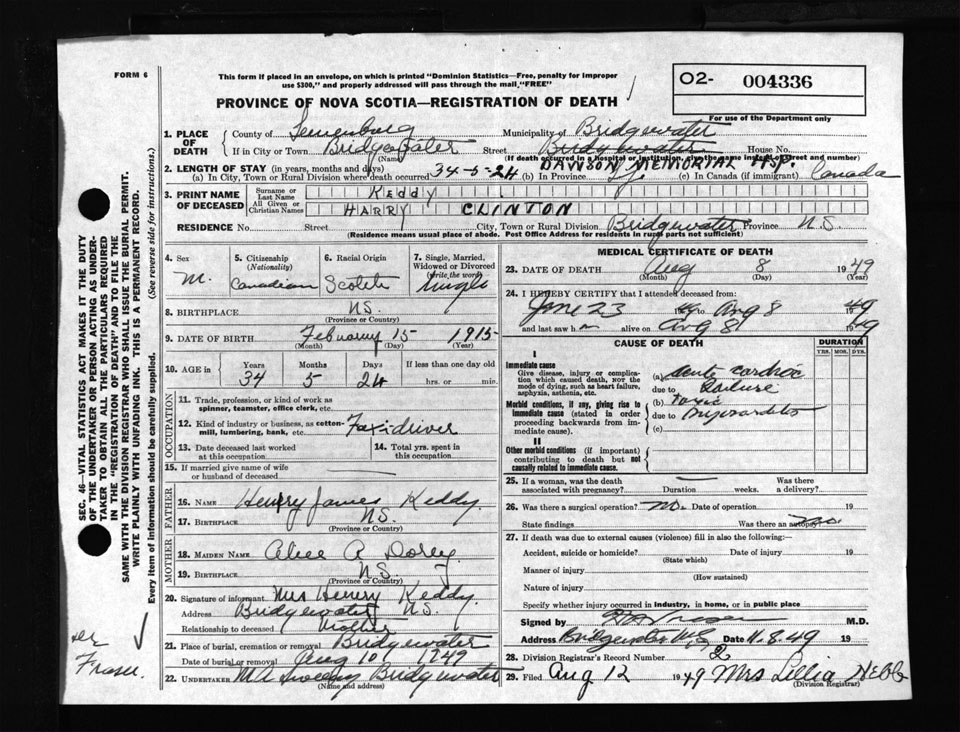 FORM 6
This form if placed in an envelope, on which is printed "Dominion Statistics—Free, penalty for improper
use $300," and properly addressed will pass through the mail, "FREE"
O2- 004336
For use of the Department only
PROVINCE OF NOVA SCOTIA—REGISTRATION OF DEATH
SEC. 46—VITAL STATISTICS ACT MAKES IT THE DUTY
OF THE UNDERTAKER OR PERSON ACTING AS UNDER-
TAKER TO OBTAIN ALL THE PARTICULARS REQUIRED
IN THE "REGISTRATION OF DEATH" AND TO FILE THE
SAME WITH THE DIVISION REGISTRAR WHO SHALL ISSUE THE BURIAL PERMIT.
WRITE PLAINLY WITH UNFADING INK. THIS IS A PERMANENT RECORD.
Every item of information should be carefully supplied. (See reverse side for instructions.)
1. PLACE OF DEATH
County of Lunenburg Municipality of Bridgewater
If in City or Town Bridgewater Street Bridgewater House No.
(Name)
(If death occurred in a hospital or institution, give the name instead of street and number)
DAWSON MEMORIAL HSP.
2. LENGTH OF STAY (in years, months and days)
(a) In City, Town or Rural Division where death occurred 34-5-24 (b) In Province (c) In Canada (if immigrant) Canada
3. PRINT NAME OF DECEASED
Surname or Last Name KEDDY
All Given or Christian Names HARRY CLINTON
RESIDENCE No. Street City, Town or Rural Division Bridgewater Province N.S.
(Residence means usual place of abode. Post Office Address for residents in rural parts not sufficient)
4. Sex M.
5. Citizenship (Nationality) Canadian
6. Racial Origin Scotch
7. Single, Married, Widowed or Divorced (write the word) Single
8. BIRTHPLACE N.S.
(Province or Country)
9. DATE OF BIRTH February 15 1915
(Month) (Day) (Year)
10. AGE in Years Months Days If less than one day
34 5 24 hrs. or min.
OCCUPATION
11. Trade, profession, or kind of work as
spinner, teamster, office clerk, etc.
12. Kind of industry or business, as cotton-
mill, lumbering, bank, etc. Taxi driver
13. Date deceased last worked at this occupation
14. Total yrs. spent in this occupation
15. If married give name of wife
or husband of deceased
FATHER
16. NAME Henry James Keddy.
17. BIRTHPLACE N.S.
(Province or Country)
MOTHER
18. MAIDEN NAME Alice A Dorey
19. BIRTHPLACE N.S.
(Province or Country)
20. Signature of informant Mrs Henry Keddy.
Address Bridgewater N.S.
Relationship to deceased Mother
21. Place of burial, cremation or removal Bridgewater
Date of burial or removal Aug 10 1949
22. UNDERTAKER Sweeny Bridgewater
(Name and address)
MEDICAL CERTIFICATE OF DEATH
23. DATE OF DEATH Aug 8 1949
(Month) (Day)
24. I HEREBY CERTIFY that I attended deceased from:
June 23 to Aug 8 1949
and last saw h m alive on Aug 8 1949
CAUSE OF DEATH
DURATION
YRS. MOS. DYS.
I
Immediate cause
Give disease, injury or compli-
cation which caused death, not the
mode of dying, such as heart failure,
asphyxia, asthenia, etc.
(a) acute cardiac
due to failure
Morbid conditions, if any, giving rise to
immediate cause (stated in order
proceeding backwards from im-
mediate cause).
(b) toxic
due to myocarditis
(c)
II
Other morbid conditions (if important)
contributing to death but not
causally related to immediate cause.
25. If a woman, was the death
associated with pregnancy? Duration weeks. Was there a delivery?
26. Was there a surgical operation? no. Date of operation 19
State findings Was there an autopsy? no.
27. If death was due to external causes (violence) fill in also the following:—
Accident, suicide or homicide? Date of injury 19
(State which)
Manner of injury
(How sustained)
Nature of injury
Specify whether injury occurred in industry, in home, or in public place
Signed by Fraser M.D.
Address Bridgewater N.S. Date 11.8.49 19
28. Division Registrar's Record Number 2
29. Filed Aug 12 1949 Mrs Lillia Hebb
(Division Registrar)
Fraser.